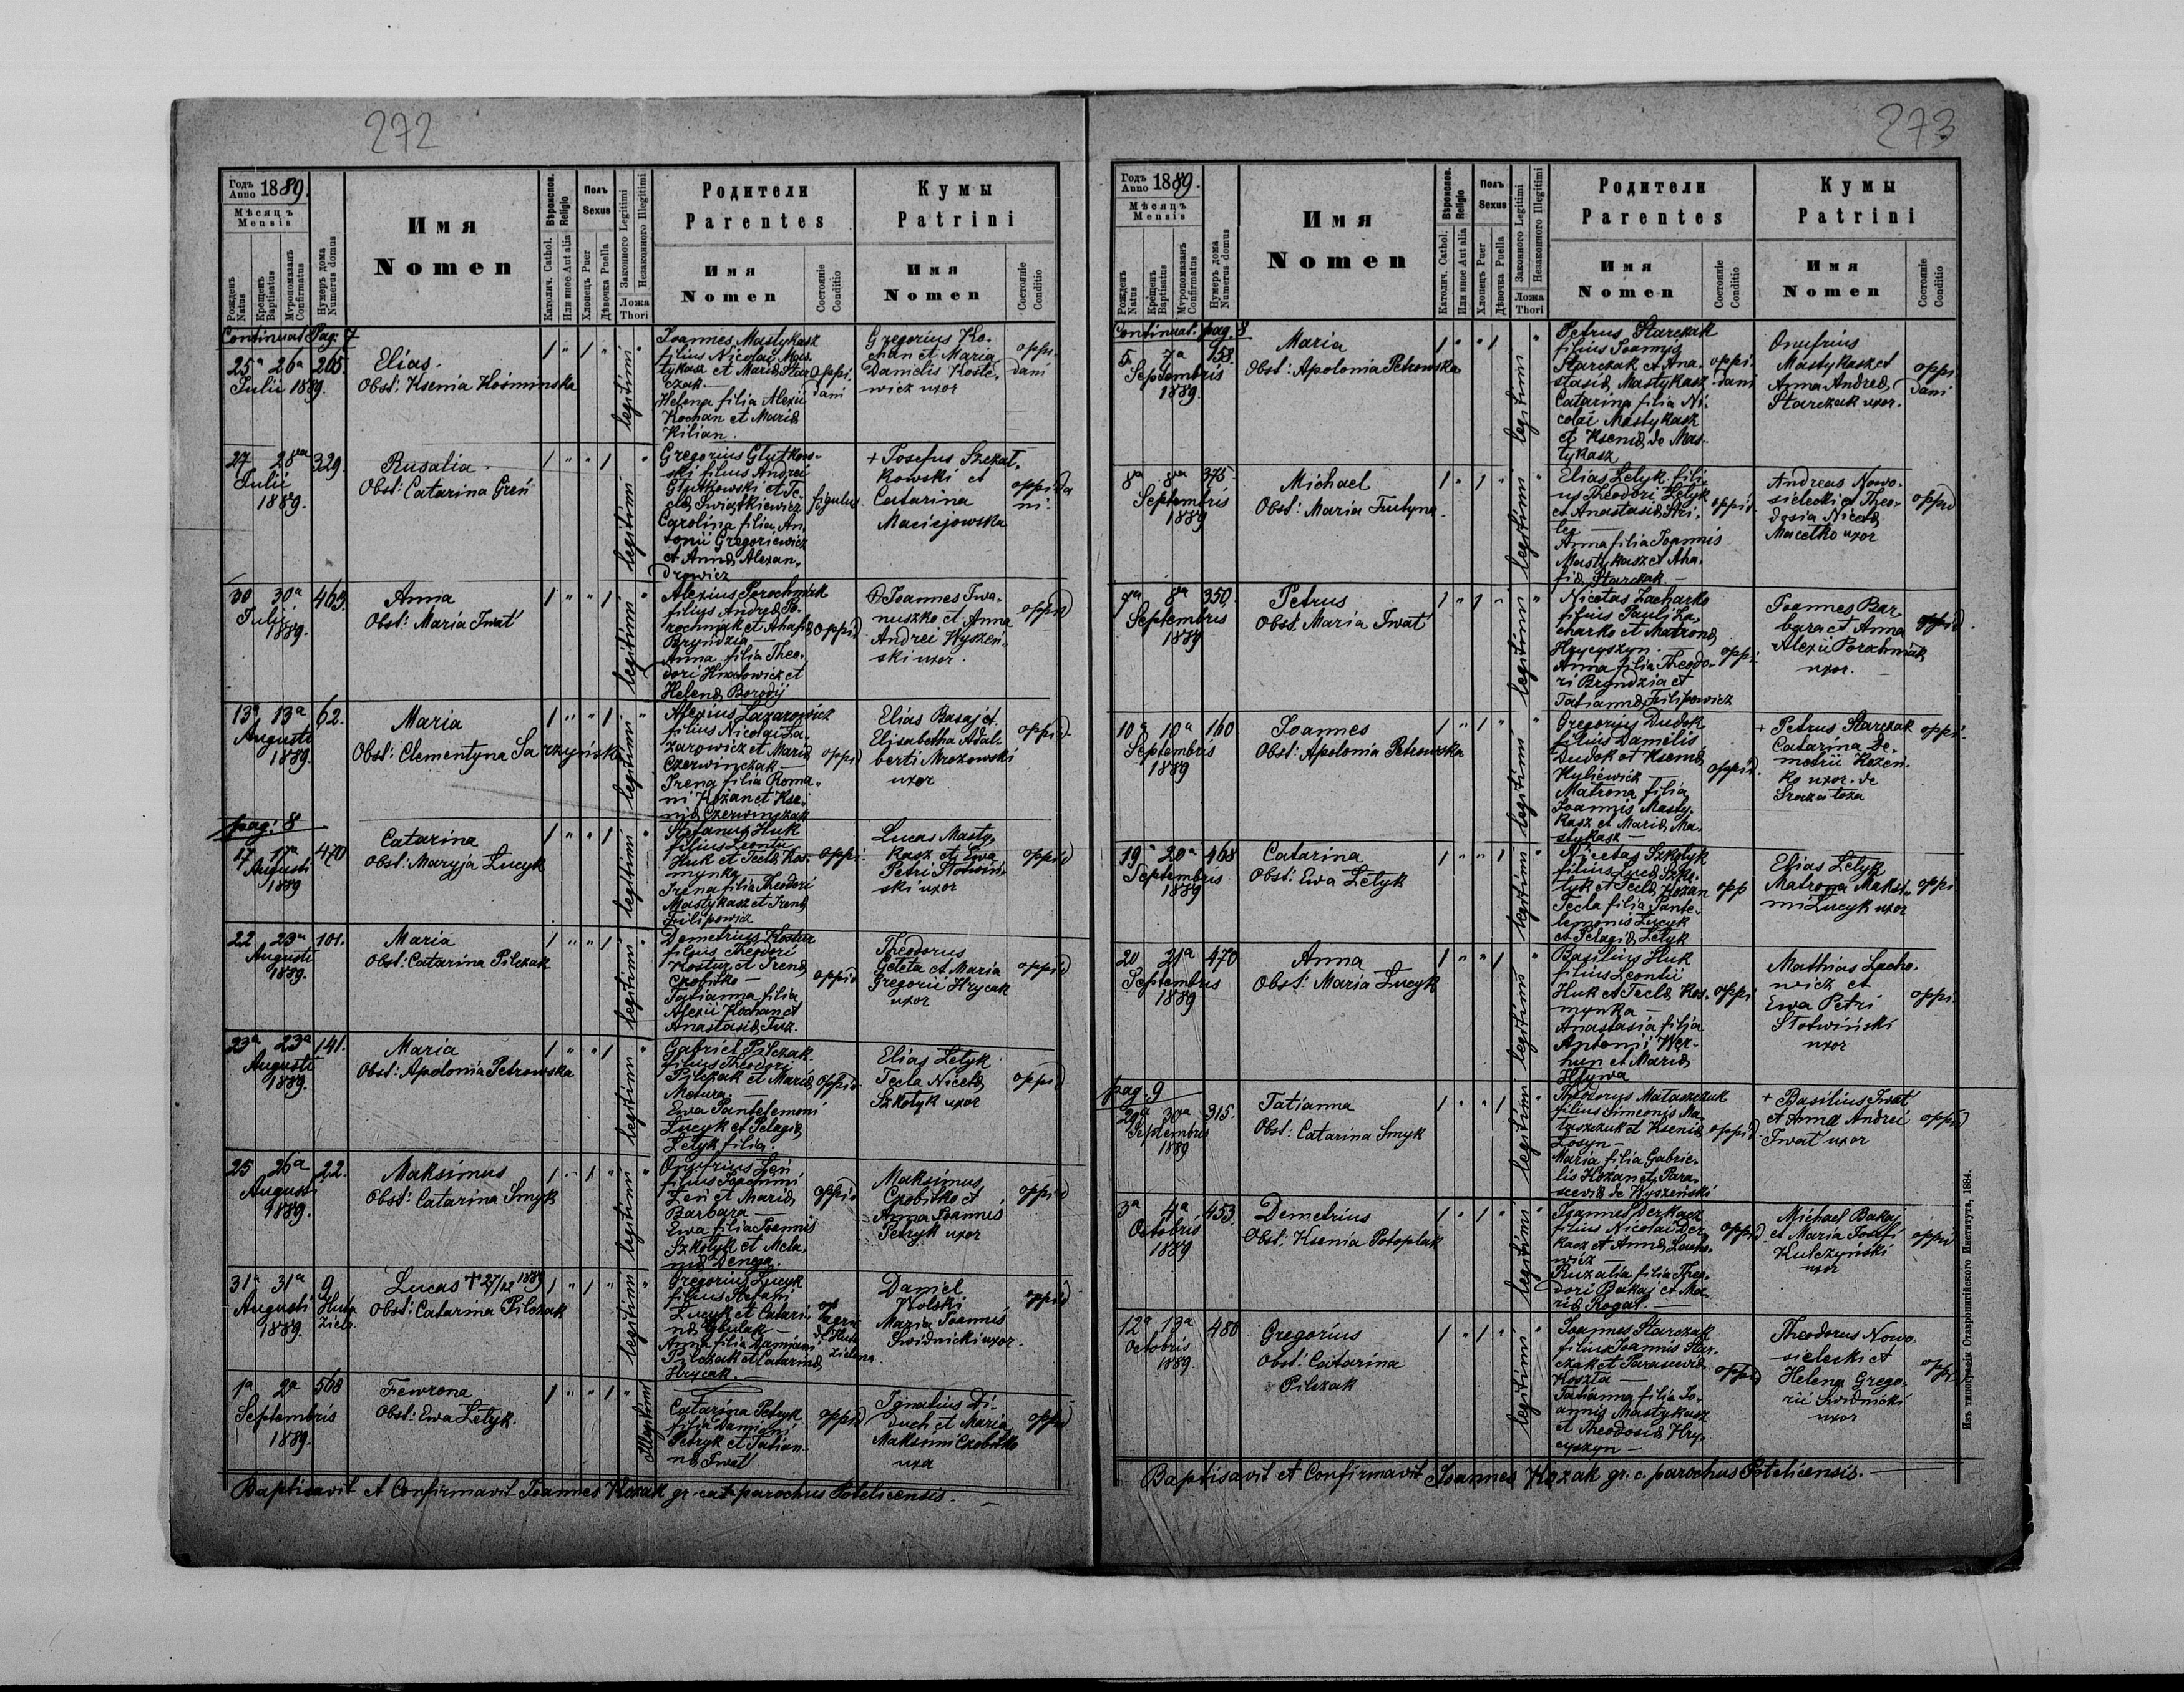 272
Годъ Anno 1889.
Мѣсяцъ
Mensis
Рожденъ Natus
Крещенъ Baptisatus
Мѵропомазанъ Confirmatus
Нумеръ дома Numerus domus
Имя
Nomen
Вѣроиспов. Religio
Католич. Cathol.
Или иное Aut alia
Полъ
Sexus
Хлопецъ Puer
Дѣвочка Puella
Законного Legitimi
Незаконного Illegitimi
Ложа
Thori
Родители
Parentes
Имя
Nomen
Состояніе
Conditio
Кумы
Patrini
Имя
Nomen
Состояніе
Conditio
Continuat. Pag. 7
25ª 26ª 265
Julii 1889.
Elias.
Obst: Ksenia Kośminska
legitimi
Joannes Mastykasz
filius Nicolai Mas-
tykasz et Mariæ Star
czak.
Helena filia Alexii
Kochan et Mariæ
Kilian.
oppi
dani
Gregorius Ko-
chan et Maria
Danielis Koste-
wicz uxor
oppi
dani
27 28va 329.
Julii
1889.
Rusalia.
Obst: Catarina Gren
legitimi
Gregorius Glutkow-
ski filius Andrei
Glutkowski et Te-
clæ Swiątkiewicz
Carolina filia An-
tonii Gregoriewicz
et Annæ Alexan-
drowicz
figulus
+ Josefus Szczat-
kowski et
Catarina
Maciejowska
oppida
ni.
30 30ª 463.
Julii
1889.
Anna
Obst: Maria Jwat
legitimi
Alexius Porochniak
filius Andreæ Po-
rochniak et Ahafiæ
Bryndzia —
Anna filia Theo-
dori Hnatowicz et
Helenæ Borodij
oppid
Joannes Jwa-
nuszko et Anna
Andrei Wyszeń-
ski uxor.
oppid
13ª 13ª 62.
Augusti
1889.
Maria
Obst: Clementyna Sarzyńska
legitimi
Alexius Lazarowicz
filius Nicolai La-
zarowicz et Mariæ
Czerwinczak —
Irena filia Roma-
ni Kożan et Kse-
niæ Czerwinczak
oppid
Elias Basaj et
Elisabetha Adal-
berti Mrozowski
uxor
oppid
pag: 8
17 17ª 470
Augusti
1889
Catarina
Obst: Maryja Lucyk
legitimi
Stefanus Huk
filius Leontii
Huk et Teclæ Kos-
mynka
Irena filia Theodori
Mastykasz et Irenæ
Filipowicz
oppi
Lucas Masty-
kasz et Ewa
Petri Słotwiń-
ski uxor
oppid
22 23ª 101.
Augusti
1889.
Maria
Obst: Catarina Pilczak
legitimi
Demetrius Kostur
filius Theodori
Kostur et Irenæ
Czobitko —
Tatianna filia
Alexii Kochan et
Anastasiæ Fuz.
oppid
Theodorus
Geleta et Maria
Gregorii Hrycak
uxor
oppid
23ª 23ª 141.
Augusti
1889.
Maria
Obst: Apolonia Petrowska
legitimi
Gabriel Pilczak
filius Theodori
Pilczak et Mariæ
Motura. —
Ewa Pantelemoni
Lucyk et Pelagiæ
Letyk filia.
oppid
Elias Letyk
Tecla Nicetæ
Szkolyk uxor
oppid
25 26ª 22.
Augusti
1889.
Maksimus
Obst: Catarina Smyk
legitimi
Onufrius Len
filius Joannis
Len et Mariæ
Barbara —
Ewa filia Joannis
Szkolyk et Mela-
niæ Denega.
oppid
Maksimus
Czobitko et
Anna Joannis
Petryk uxor
oppid
31ª 31ª 9
Augusti Huta
1889. Zielo.
Lucas + 27/12 1889
Obst: Catarina Pilczak
legitimi
Gregorius Lucyk
filius Stefani
Lucyk et Catari-
næ Cybulak —
Anna filia Damiani
Pilczak et Catarinæ
Hrycak. —
de Huta
zielena.
Daniel
Wolski
Maria Joannis
Swidnicki uxor.
oppid
1ª 2ª 568
Septembris
1889.
Fewrona
Obst: Ewa Letyk.
Illegitimi
Catarina Petryk
filia Damiani
Petryk et Tatian-
næ Jwat
oppid
Ignatius Di-
duch et Maria
Maksimi Czobitko
uxor
oppid
Baptisavit et Confirmavit Joannes Kozak gr. cat. parochus Potelicensis. —
273
Годъ Anno 1889.
Мѣсяцъ
Mensis
Рожденъ Natus
Крещенъ Baptisatus
Мѵропомазанъ Confirmatus
Нумеръ дома Numerus domus
Имя
Nomen
Вѣроиспов. Religio
Католич. Cathol.
Или иное Aut alia
Полъ
Sexus
Хлопецъ Puer
Дѣвочка Puella
Законного Legitimi
Незаконного Illegitimi
Ложа
Thori
Родители
Parentes
Имя
Nomen
Состояніе
Conditio
Кумы
Patrini
Имя
Nomen
Состояніе
Conditio
Continuat. pag. 8
5. 7ª 158.
Septembris
1889.
Maria
Obst: Apolonia Petrowska
legitimi
Petrus Starczak
filius Joannis
Starczak et Ana-
stasiæ Mastykasz
Catarina filia Ni-
colai Mastykasz
et Kseniæ de Mas-
tykasz
oppi-
dani
Onufrius
Mastykasz et
Anna Andreæ
Starczak uxor.
oppi
dani
8va 8va 375.
Septembris
1889
Michael
Obst: Maria Justyna.
legitimi
Elias Letyk fili-
us Theodori Letyk
et Anastasiæ Stri-
leg —
Anna filia Joannis
Mastykasz et Aha-
fiæ Starczak. —
oppid
Andreas Nowo-
sielecki et Theo-
dosia Nicetæ
Macelko uxor
oppid
7va 8va 350.
Septembris
1889
Petrus
Obst. Maria Jwat
legitimi
Nicetas Zacharko
filius Pauli Za-
charko et Matronæ
Hrycyszyn. —
Anna filia Theodo-
ri Bryndzia et
Tatiannæ Filipowicz
oppi.
Joannes Bar-
bara et Anna
Alexii Porochniak
uxor.
oppid.
10ª 10ª 160
Septembris
1889
Joannes
Obst: Apolonia Petrowska
legitimi
Gregorius Dudok
filius Danielis
Dudok et Kseniæ
Hyliewicz —
Matrona filia
Joannis Masty-
kasz et Mariæ Ma-
stykasz —
oppid.
+ Petrus Starczak
Catarina De-
metrii Kozen-
ko uxor. de
oppi-
19ª 20ª 468
Septembris
1889
Catarina
Obst: Ewa Letyk
legitimi
Nicetas Szkolyk
filius Lucæ Szko-
lyk et Teclæ Kożan
Tecla filia Pante-
lemonis Lucyk
et Pelagiæ Letyk
opp
Elias Letyk
Matrona Maksi-
mi Lucyk uxor
oppi
20 21ª 470
Septembris
1889
Anna
Obst: Maria Lucyk
legitimi
Basilius Huk
filius Leontii
Huk et Teclæ Kos-
mynka —
Anastasia filia
Antonii Wer-
hun et Mariæ
Hlywa
oppi.
Mathias Lacho-
wicz et
Ewa Petri
Słotwiński
uxor
oppi.
pag. 9
29ª 30ª 315.
Septembris
1889
Tatianna
Obst: Catarina Smyk
legitimi
Theodorus Mataszczuk
filius Simeonis Ma-
taszczuk et Kseniæ
Losyn —
Maria filia Gabrie-
lis Kożan et Para-
sceviæ de Wyszeński
oppid
+ Basilius Jwat
et Anna Andrei
Jwat uxor
oppid
3ª 4ª 453.
Octobris
1889
Demetrius
Obst: Ksenia Potoplak
legitimi
Joannes Derkacz
filius Nicolai Der-
kacz et Annæ Lacho-
wicz —
Ruzalia filia Theo-
dori Bakaj et Ma-
riæ Rogal. —
oppid
Michael Bakaj
et Maria Josefi
Kulczyński
uxor
oppid
12ª 13ª 480
Octobris
1889.
Gregorius
Obst: Catarina
Pilczak
legitimi
Joannes Starczak
filius Joannis Star-
czak et Parasceviæ
Koszta —
Tatianna filia Jo-
annis Mastykasz
et Theodosiæ Hry-
cyszyn —
oppid
Theodorus Nowo-
sielecki et
Helena Grego-
rii Swidnicki
uxor
oppi
Baptisavit et Confirmavit Joannes Kozak gr. c. parochus Potelicensis.
Изъ типографіи Ставропигійского Института, 1884.